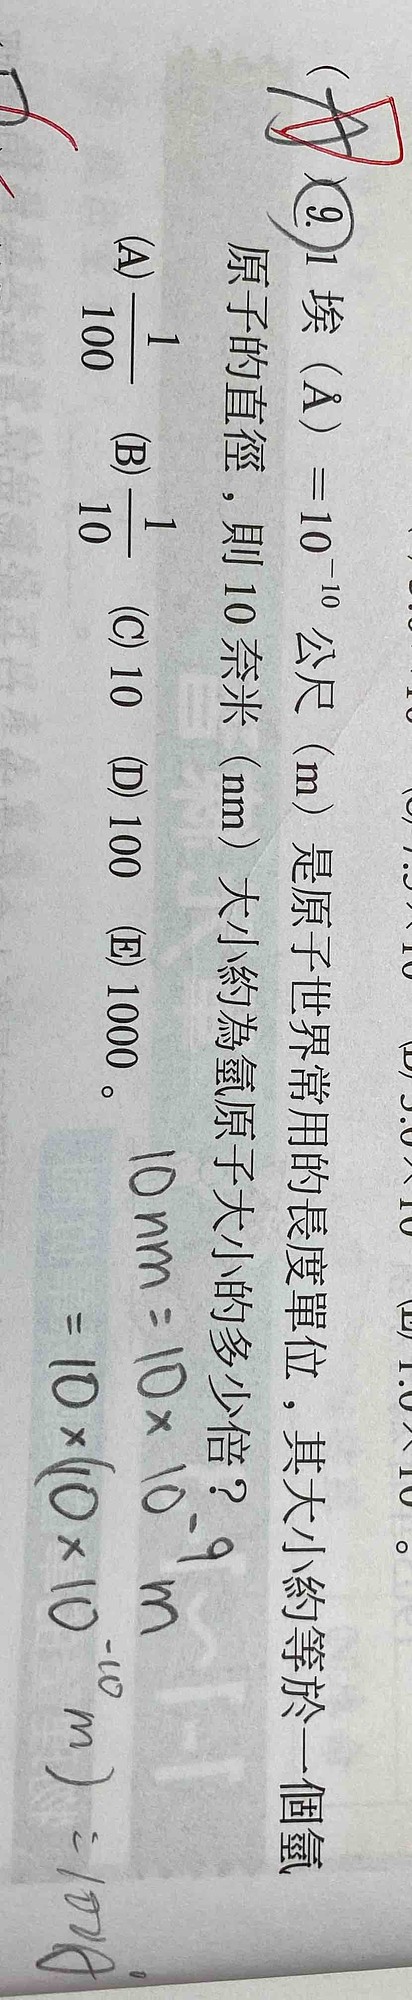 ( A ) 9. 1 埃（Å）=10⁻¹⁰ 公尺（m）是原子世界常用的長度單位，其大小約等於一個氫
原子的直徑，則 10 奈米（nm）大小約為氫原子大小的多少倍？
(A) 1/100 (B) 1/10 (C) 10 (D) 100 (E) 1000。
10 nm = 10 × 10⁻⁹ m
= 10 × (10 × 10⁻¹⁰ m) = 100Å